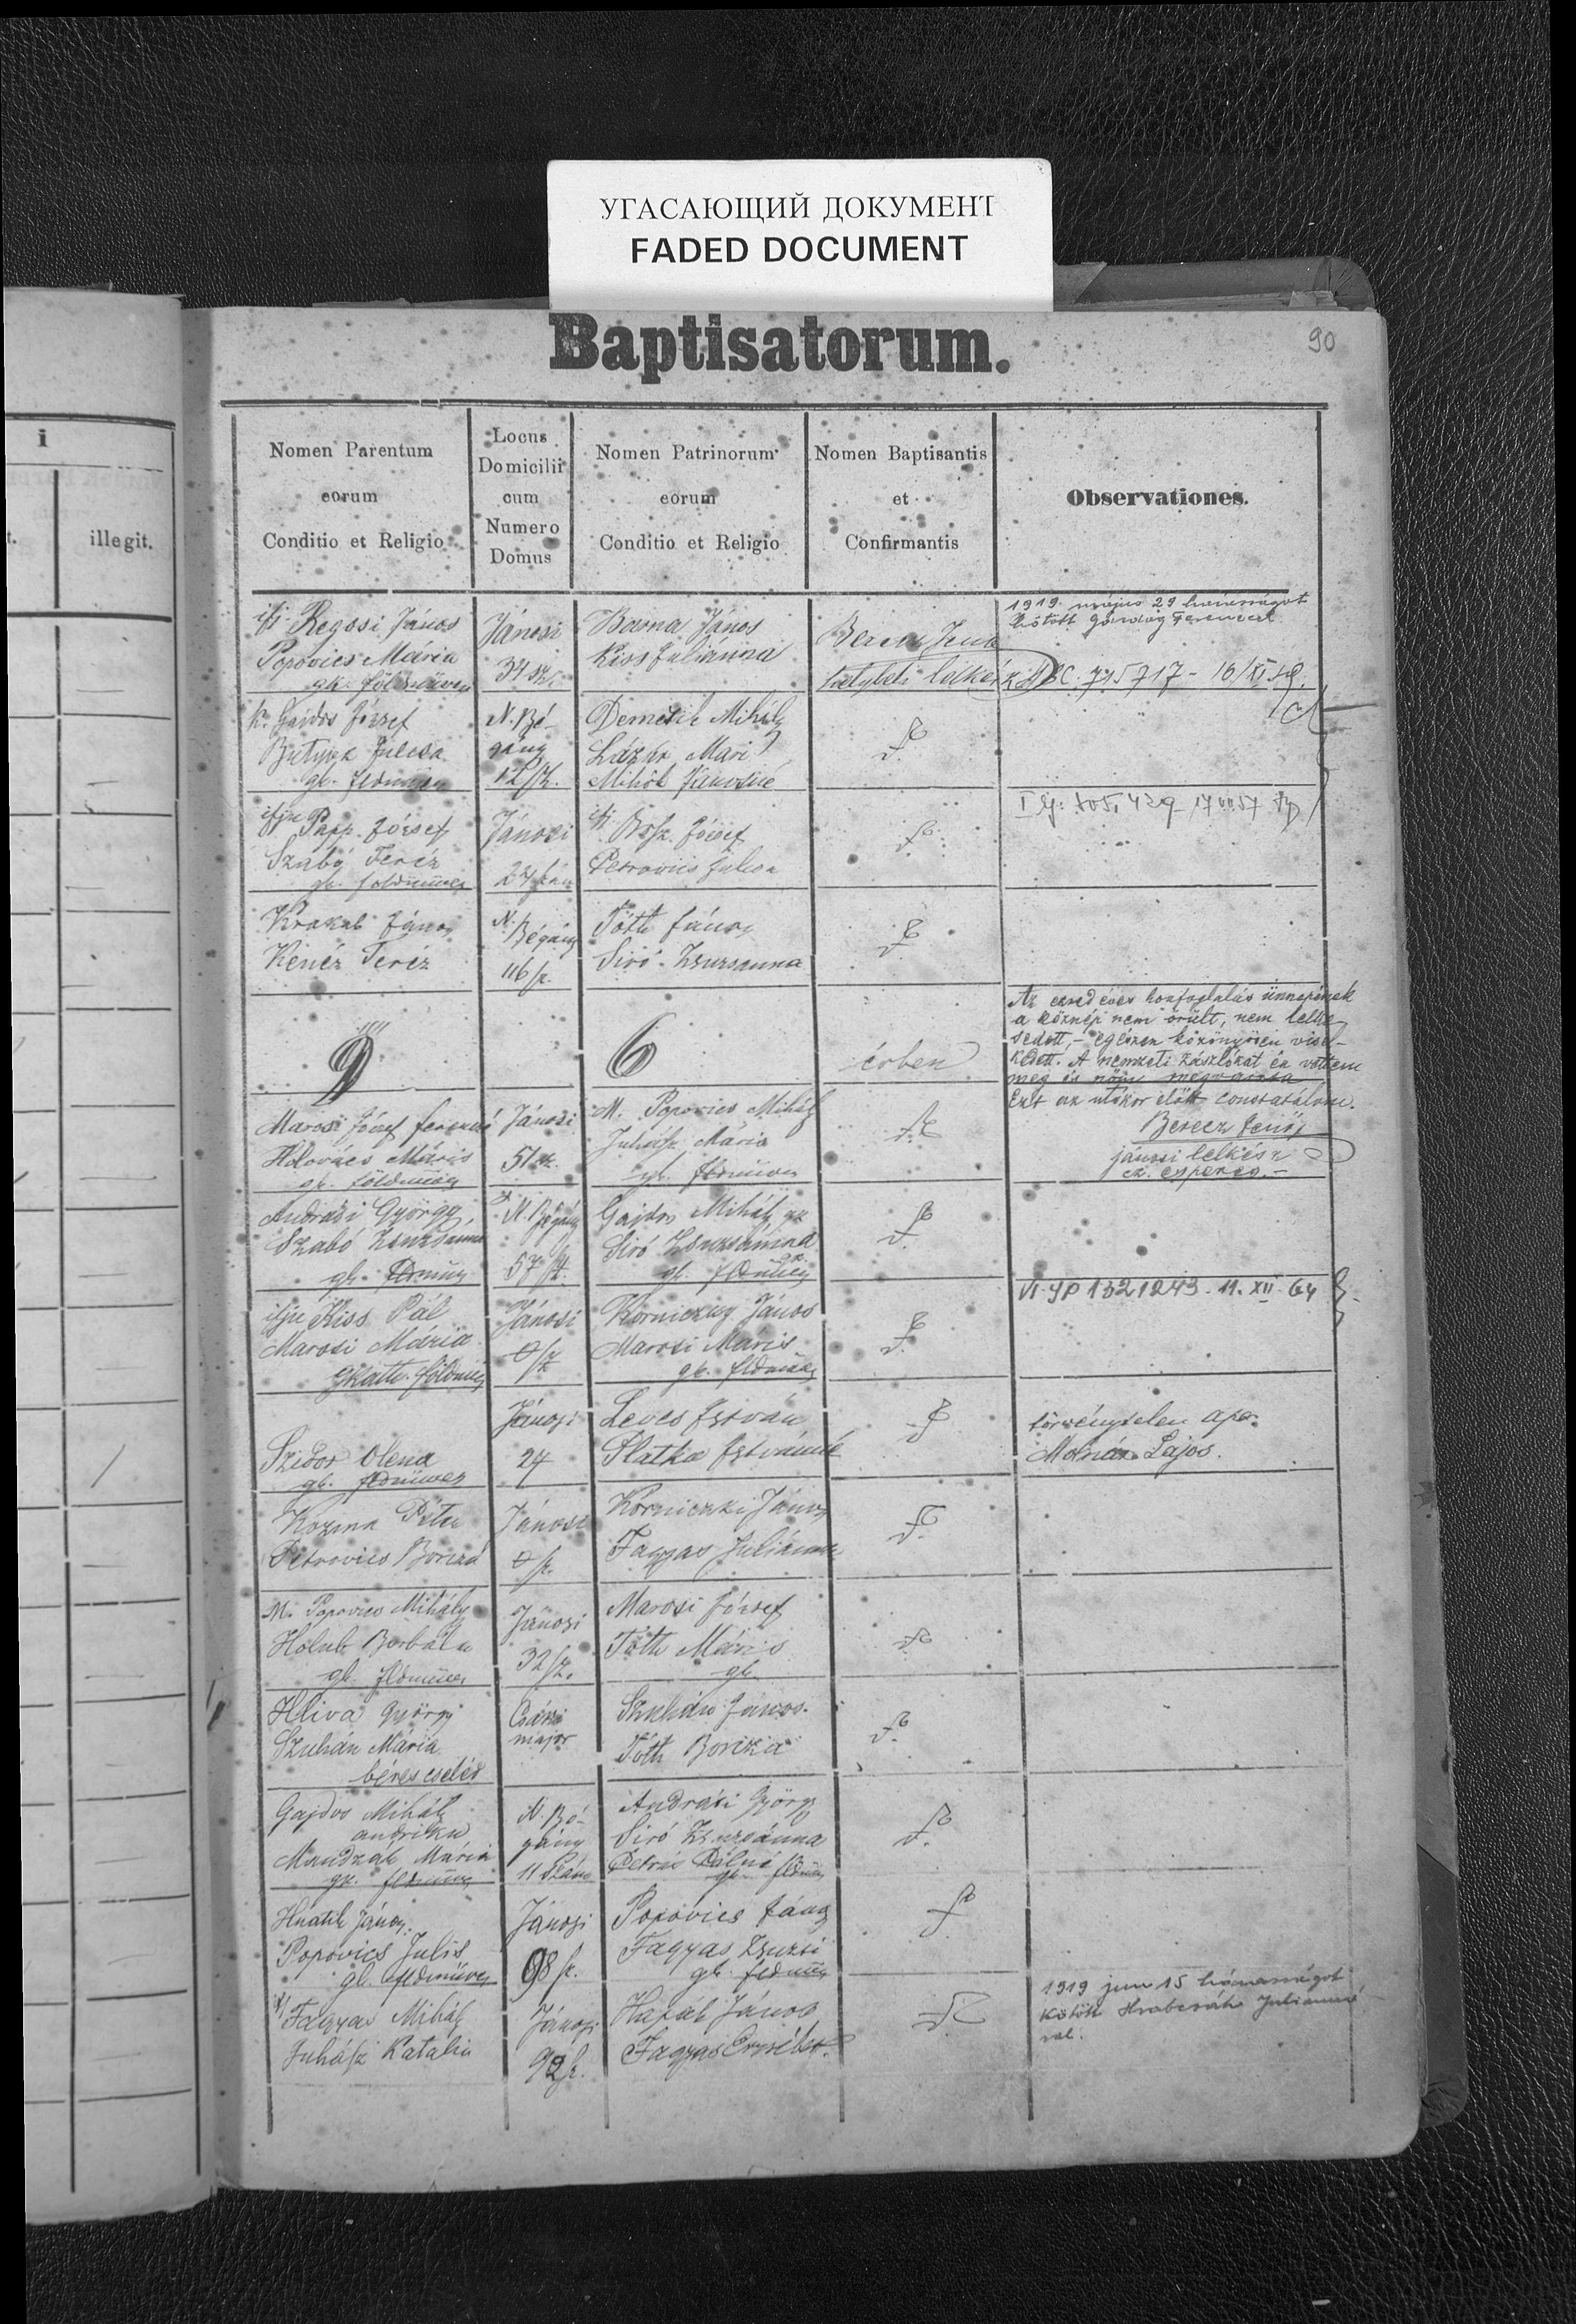 УГАСАЮЩИЙ ДОКУМЕНТ
FADED DOCUMENT
Baptisatorum.
90
i
t.
illegit.
Nomen Parentum
eorum
Conditio et Religio
Locus
Domicilii
cum
Numero
Domus
Nomen Patrinorum
eorum
Conditio et Religio
Nomen Baptisantis
et
Confirmantis
Observationes.
ifj. Regosi János
Popovics Mária
gk. földmüves
Jánosi
34 sz.
Barna János
Kiss Juliánna
Berecz Jenő
helybeli lelkész
1919 május 29 házasságot
kötött Ferenccel
715717 - 16/XI
Gajdos József
Julcsa
gk. fldmüves
N. Bé-
gány
12 sz.
Demetik Mihály
Lázár Mari
Mihók Jánosné
ifju Papp József
Szabó Teréz
gk. földmüves
Jánosi
ifj. József
Petrovics Julcsa
Krakab János
Kenéz Teréz
N. Bégány
116 sz.
Tóth János
Siró Zsuzsanna
9
6
évben
Az ezred éves honfoglalás ünnepének
a köznép nem örült, nem lelke-
sedett, - egészen közönyösen visel-
kedett. A nemzeti zászlókat én vettem
meg és
Ezt az utókor előtt constatálom.
Berecz Jenő
jánosi lelkész
cz. esperes.-
Marosi József
Holovács Máris
gk. földmüves
Jánosi
51 sz.
M. Popovics Mihály
Juhász Mária
gk. fldmüves
Andrási György
Szabó Zsuzsanna
gk.
N. Bégány
57 sz.
Gajdos Mihály gk
Siró Zsuzsánna
gk. fldmüves
ifju Kiss Pál
Marosi Mária
gkath. földmüv
Jánosi
0/sz
Korniczky János
Marosi Máris
gk. fldmüves
VI-ЯР 1321243 - 11. XII. 64
Szidor Olena
gk. fldmüves
Jánosi
24
Leves István
Platka Istvánné
törvénytelen apa:
Molnár Lajos.
Kozma Péter
Petrovics Borcsa
Jánosi
0/sz.
Korniczki János
Fagyas Juliánna
M. Popovics Mihály
Holub Borbála
gk. fldmüves
Jánosi
32/sz.
Marosi József
Tóth Máris
gk.
Hliva György
Szuhán Mária
béres cseléd
major
Szuhán János.
Tóth Boriska
Gajdos Mihály
andriska
Mandzák Mária
gk. fldmüves
N. Bé-
gány
11 szám
Andrási György
Siró Zsuzsánna
Petrás Pálné
gk. fldmüv
Hnatik János.
Popovics Julis
gk. fldmüves
Jánosi
98 sz.
Popovics János
Fagyas Zsuzsi
gk. fldmüv
Fagyas Mihály
Juhász Katalin
Jánosi
92 sz.
János
Fagyas Erzsébet.
1919 jun 15 házasságot
kötött Hrabcsák Juliannával.